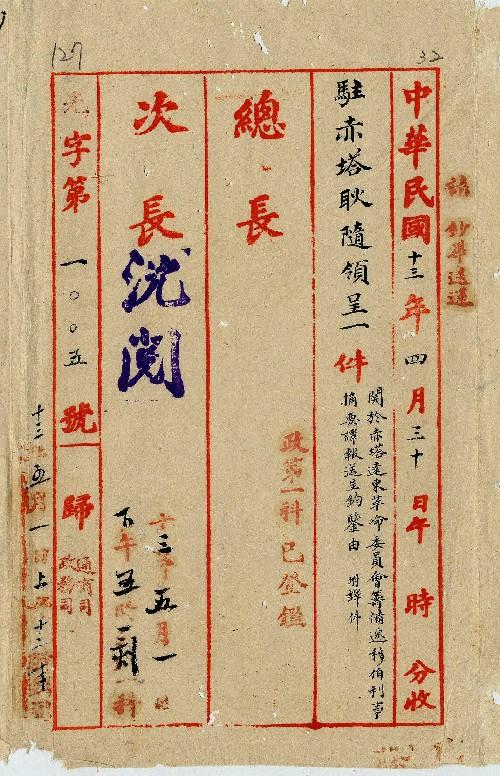 127
32
請 鈔畢送還
中華民國十三年四月三十日午 時 分收
駐赤塔耿隨領呈一件
關於赤塔遠東革命委員會籌備遷移伯利事
摘要譯報送呈鈞鑒由 附譯件
總長
政第一科已登鑑
次長
沈閱
十三年五月一
下午五
字第一〇〇五號
歸
通商司
政務司
十三 五月一日上 十